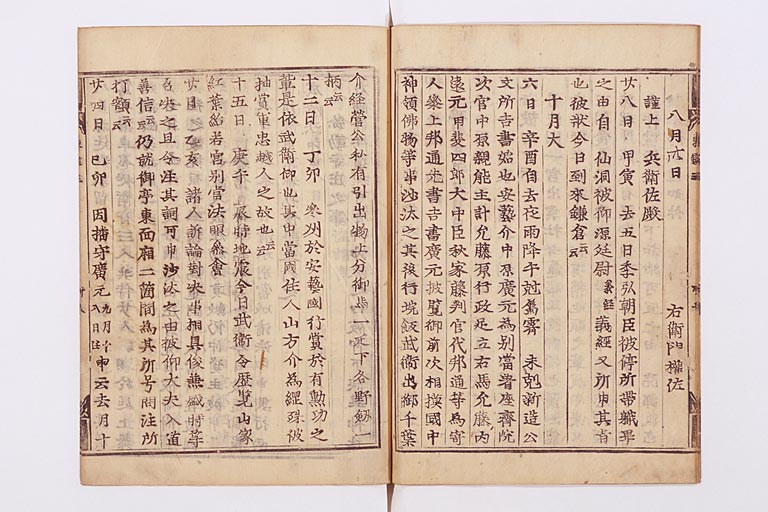 八月 日 右衛門權佐
謹上 兵衛佐殿
廿八日 甲寅 去五日季弘朝臣被停所帶職畢
之由自 仙洞被仰源廷尉義經義經又所申其旨
也彼狀今日到來鎌倉云云
十月大
六日 辛酉自去夜雨降午剋屬霽 未剋新造公
文所吉書始也安藝介中原廣元為別當著座齊院
次官中原親能主計允藤原行政足立右馬允藤内
遠元甲斐四郎大中臣秋家藤判官代邦通等為寄
人參上邦通先書吉書廣元披覽御前次相摸國中
神領佛物等事沙汰之其後行垸飯武衛出御千葉
介經營公私有引出物上分御馬一疋下各野劔一
柄云云
十二日 丁卯 參州於安藝國行賞於有勲功之
輩是依武衛御也其中當國住人山方介為綱殊被
抽賞軍忠越人之故也云云
十五日 庚午 辰時地震今日武衛令歷覽山家
紅葉給若宮別當法眼參會
廿日 乙亥 諸人訴論對決事相具俊兼盛時等
召決之且令注其詞可申沙汰之由被仰大夫入道
善信云云仍就御亭東面廂二箇間為其所号問注所
打額云云
廿四日 己卯 因播守廣元九月十八日任申云去月十